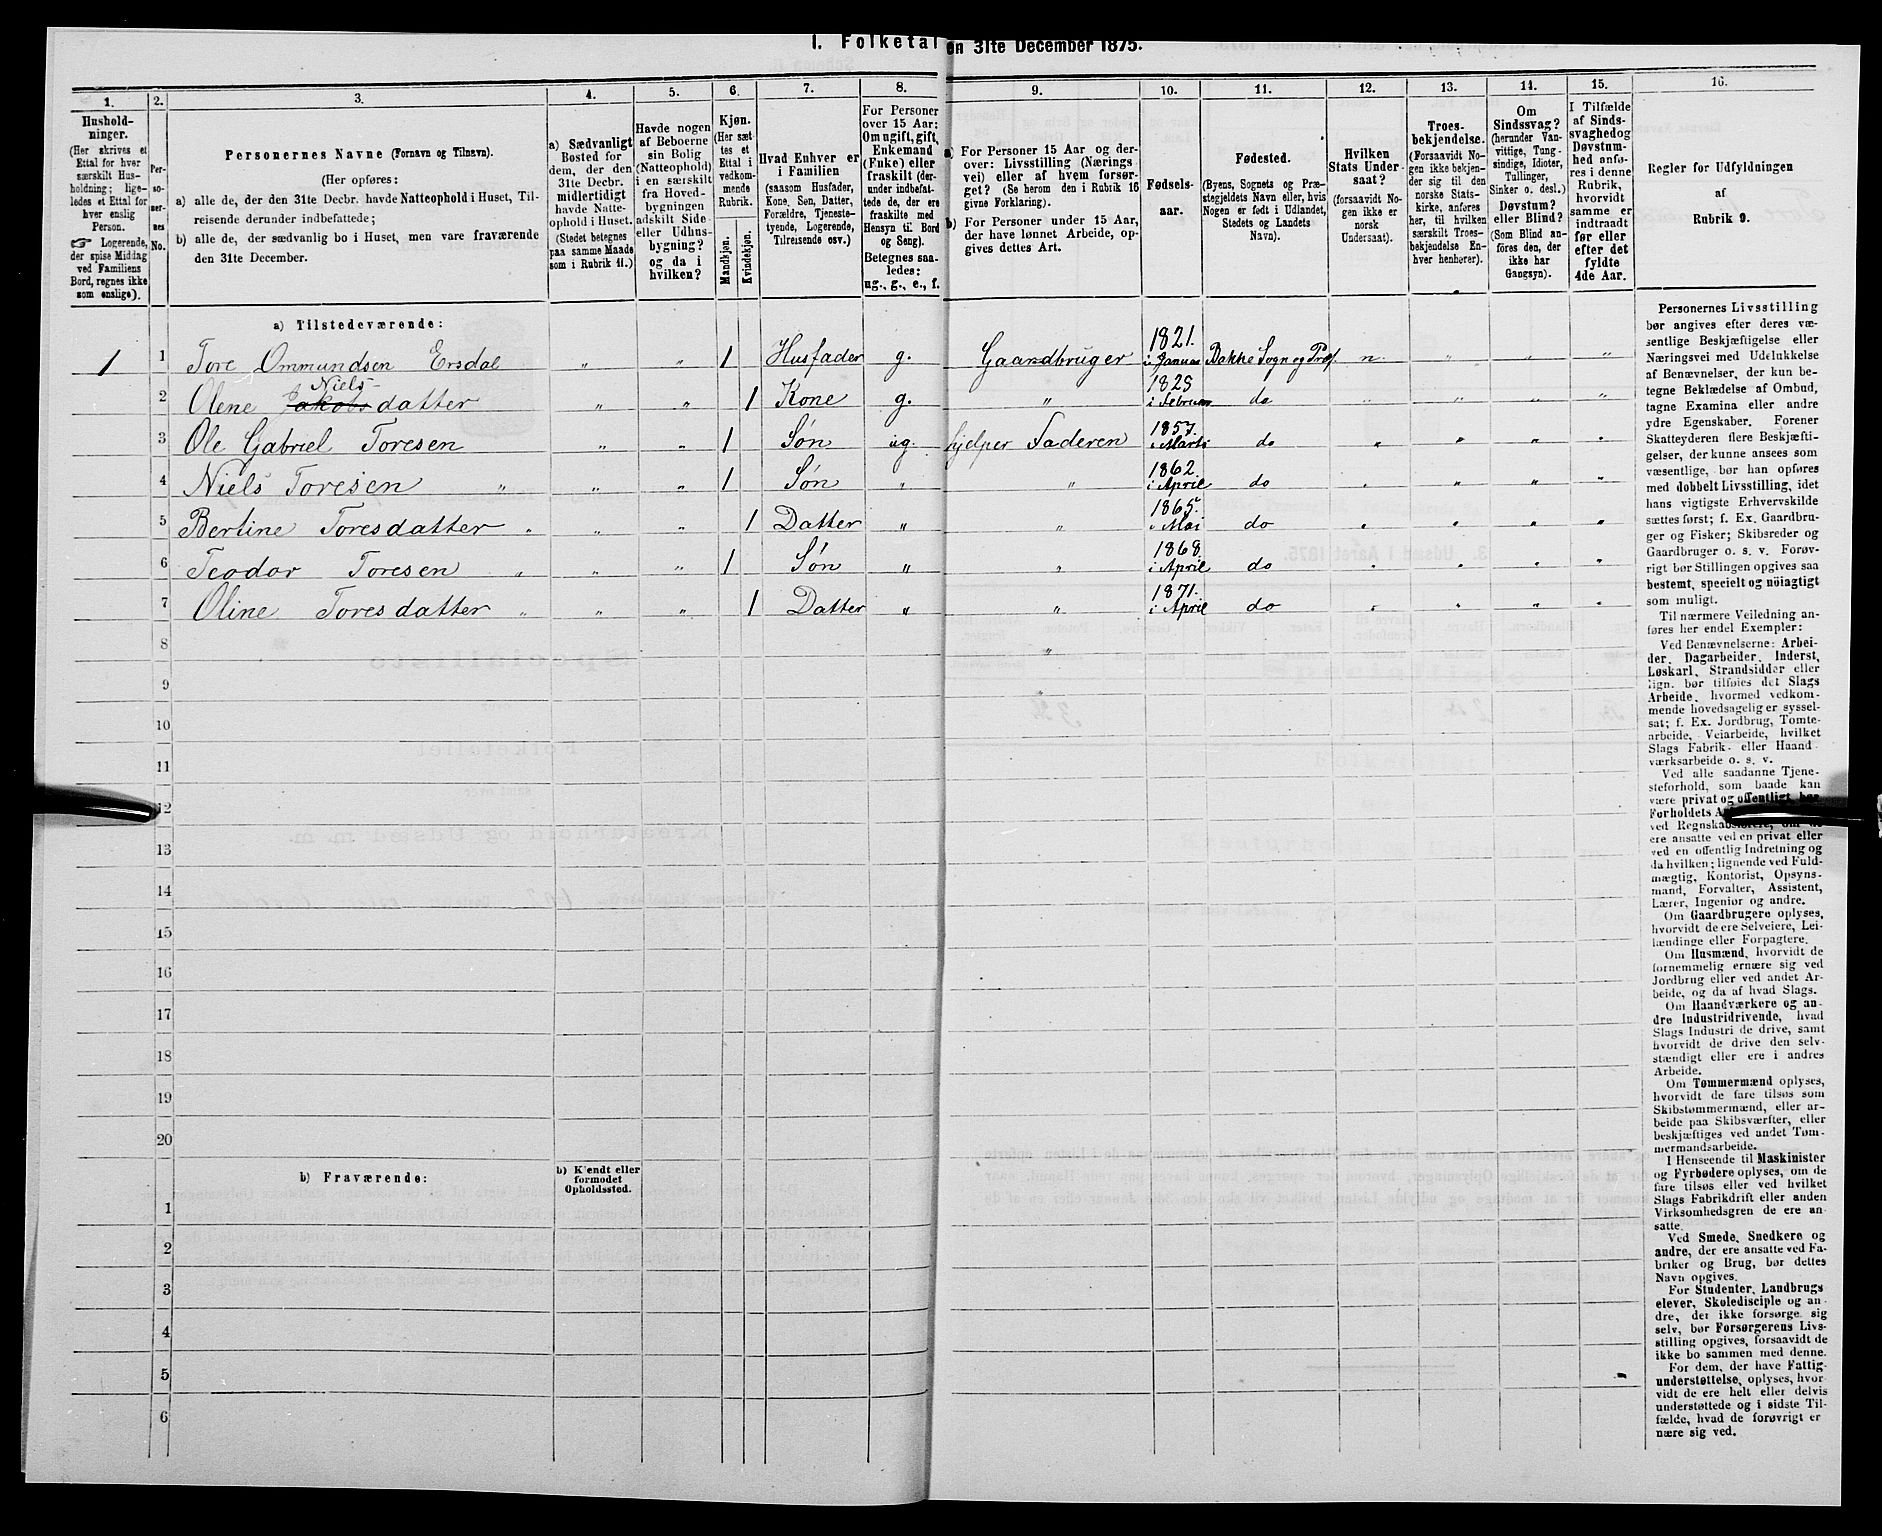 I. Folketal
en 31te December 1875.
1.
2.
3.
4.
5.
6.
7.
8.
9.
10.
11.
12.
13.
14.
15.
16.
Hushold-
ninger.
(Her skrives et
Ettal for hver
særskilt Hus-
holdning; lige-
ledes et Ettal for
hver enslig
Person.
☞ Logerende,
der spise Middag
ved Familiens
Bord, regnes ikke
som enslige).
Per-
so-
ner-
nes
No.
Personernes Navne (Fornavn og Tilnavn).
(Her opføres:
a) alle de, der den 31te Decbr. havde Natteophold i Huset, Til-
reisende derunder indbefattede;
b) alle de, der sædvanlig bo i Huset, men vare fraværende
den 31te December.
a) Sædvanligt
Bosted for
dem, der den
31te Decbr.
midlertidigt
havde Natte-
ophold i Huset.
(Stedet betegnes
paa samme Maade
som i Rubrik 11.)
Havde nogen
af Beboerne
sin Bolig
(Natteophold)
i en særskilt
fra Hoved-
bygningen
adskilt Side
eller Udhus-
bygning?
og da i
hvilken?
Kjøn.
(Her sæt-
tes et
Ettal i
vedkom-
mende
Rubrik.
Mandkjøn.
Kvindekjøn.
Hvad Enhver er
i Familien
(saasom Husfader,
Kone, Søn, Datter,
Forældre, Tjeneste-
tyende, Logerende,
Tilreisende osv.)
For Personer
over 15 Aar:
Om ugift, gift,
Enkemand
(Enke) eller
fraskilt (der-
under indbefat-
tede de, der ere
fraskilte med
Hensyn til Bord
og Seng).
Betegnes saa-
ledes:
ug., g., e., f.
a) For Personer 15 Aar og der-
over: Livsstilling (Nærings
vei) eller af hvem forsør-
get? (Se herom den i Rubrik 16
givne Forklaring).
b) For Personer under 15 Aar,
der have lønnet Arbeide, op-
gives dettes Art.
Fødsels-
aar.
Fødested.
(Byens, Sognets og Præ-
stegjeldets Navn eller, hvis
Nogen er født i Udlandet,
Stedets og Landets
Navn).
Hvilken
Stats Under-
saat?
(forsaavidt No-
gen ikke er
norsk
Undersaat).
Troes-
bekjendelse.
(Forsaavidt No-
gen ikke bekjen-
der sig til den
norske Stats-
kirke, anføres
her, til hvilken
særskilt Troes-
bekjendelse En-
hver henhører).
Om
Sindssvag?
(herunder Van-
vittige, Tung-
sindige, Idioter,
Tullinger,
Sinker o. desl.)
Døvstum?
eller Blind?
(Som Blind an-
føres den, der
ikke har
Gangsyn).
I Tilfælde
af Sinds-
svaghed og
Døvstum-
hed anfø-
res i denne
Rubrik,
hvorvidt
samme er
indtraadt
før eller
efter det
fyldte
4de Aar.
Regler for Udfyldningen
af
Rubrik 9.
a) Tilstedeværende:
1 1 Tore Ommundsen Ersdal „ „ 1 Husfader g. Gaardbruger 1821. i Januar Bakke Sogn og Præs. n. „ „ „
Niels
2 Olene Jakobsdatter „ „ 1 Kone g. „ 1825 i Februar do „ „ „ „
3 Ole Gabriel Toresen „ „ 1 Søn ug. hjelper Faderen 1857. i Marts do „ „ „ „
4 Niels Toresen „ „ „ 1 Søn „ „ 1862. i April do „ „ „ „
5 Bertine Toresdatter „ „ „ 1 Datter „ „ 1865. i Mai do „ „ „ „
6 Teodor Toresen „ „ „ 1 Søn „ „ 1868. i April do „ „ „ „
7 Oline Toresdatter „ „ „ 1 Datter „ „ 1871. i April do „ „ „ „
8 „
9 „
10
11
12
13
14
15
16
17
18
19
20
b) Fraværende:
b) Kjendt eller
formodet
Opholdssted.
1
2
3
4
5
6
Personernes Livsstilling
bør angives efter deres væ-
sentlige Beskjæftigelse eller
Næringsvei med Udelukkelse
af Benævnelser, der kun be-
tegne Beklædelse af Ombud,
tagne Examina eller andre
ydre Egenskaber. Forener
Skatteyderen flere Beskjæfti-
gelser, der kunne ansees som
væsentlige, bør han opføres
med dobbelt Livsstilling, idet
hans vigtigste Erhvervskilde
sættes først; f. Ex. Gaardbru-
ger og Fisker; Skibsreder og
Gaardbruger o. s. v. Forøv-
rigt bør Stillingen opgives saa
bestemt, specielt og nøiagtigt
som muligt.
Til nærmere Veiledning an-
føres her endel Exempler:
Ved Benævnelserne: Arbei-
der, Dagarbeider, Inderst,
Løskarl, Strandsidder eller
lign. bør tilføies det Slags
Arbeide, hvormed vedkom-
mende hovedsagelig er syssel-
sat; f. Ex. Jordbrug, Tomte-
arbeide, Veiarbeide, hvilket
Slags Fabrik- eller Haand
værksarbeide o. s. v.
Ved alle saadanne Tjene-
steforhold, som baade kan
være privat og offentligt, bør
Forholdets
ved Regnskabsførere, om de
ere ansatte ved en privat eller
ved en offentlig Indretning og
da hvilken; lignende ved Fuld-
mægtig, Kontorist, Opsyns-
mand, Forvalter, Assistent,
Lærer, Ingeniør og andre.
Om Gaardbrugere oplyses,
hvorvidt de ere Selveiere, Lei-
lændinge eller Forpagtere.
Om Husmænd, hvorvidt de
fornemmelig ernære sig ved
Jordbrug eller ved andet Ar-
beide, og da af hvad Slags.
Om Haandværkere og an-
dre Industridrivende, hvad
Slags Industri de drive, samt
hvorvidt de drive den selv-
stændigt eller ere i andres
Arbeide.
Om Tømmermænd oplyses,
hvorvidt de fare tilsøs som
Skibstømmermænd, eller ar-
beide paa Skibsværfter, eller
beskjæftiges ved andet Tøm-
mermandsarbeide.
I Henseende til Maskinister
og Fyrbødere oplyses, om de
fare tilsøs eller ved hvilket
Slags Fabrikdrift eller anden
Virksomhedsgren de ere an-
satte.
Ved Smede, Snedkere og
andre, der ere ansatte ved Fa-
briker og Brug, bør dettes
Navn opgives.
For Studenter, Landbrugs
elever, Skoledisciple og an-
dre, der ikke forsørge sig
selv, bør Forsørgerens Livs-
stilling opgives, forsaavidt de
ikke bo sammen med denne.
For dem, der have Fattig-
understøttelse, oplyses, hvor-
vidt de ere helt eller delvis
understøttede og i sidste Til-
fælde, hvad de forøvrigt er
nære sig ved.